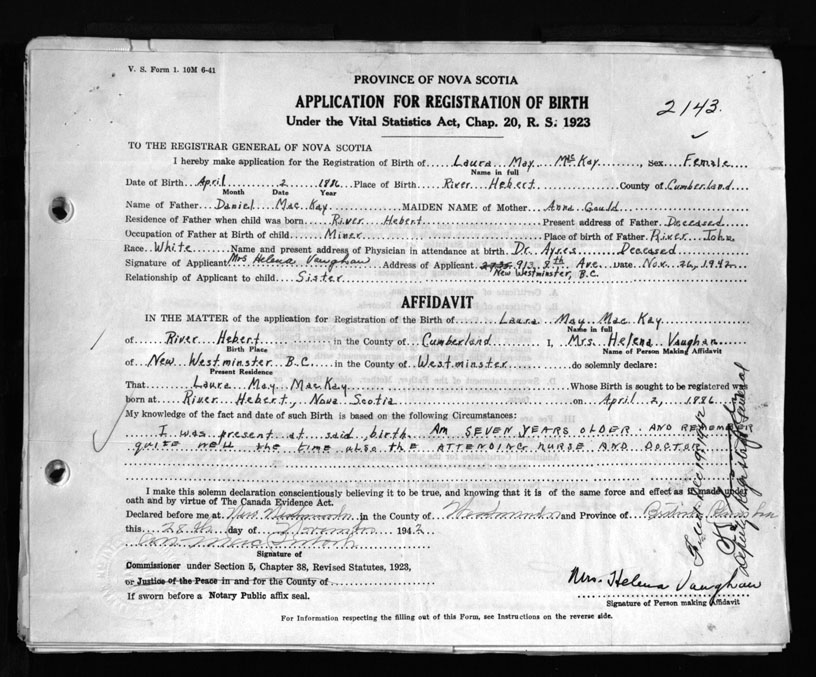 V. S. Form 1. 10M 6-41
PROVINCE OF NOVA SCOTIA
APPLICATION FOR REGISTRATION OF BIRTH
2143.
Under the Vital Statistics Act, Chap. 20, R. S. 1923
TO THE REGISTRAR GENERAL OF NOVA SCOTIA
I hereby make application for the Registration of Birth of Laura May MacKay, Sex Female
Name in full
Date of Birth April 2 1886 Place of Birth River Hebert County of Cumberland
Month Date Year
Name of Father Daniel MacKay MAIDEN NAME of Mother Anna Gauld
Residence of Father when child was born River Hebert Present address of Father Deceased
Occupation of Father at Birth of child Miner Place of birth of Father River John
Race White Name and present address of Physician in attendance at birth. Dr. Ayres Deceased
Signature of Applicant Mrs Helena Vaughan Address of Applicant 913 8th Ave. Date Nov. 26, 1942
New Westminster, B.C.
Relationship of Applicant to child Sister
AFFIDAVIT
IN THE MATTER of the application for Registration of the Birth of Laura May MacKay
Name in full
of River Hebert in the County of Cumberland I, Mrs. Helena Vaughan
Birth Place Name of Person Making Affidavit
of New Westminster B.C in the County of Westminster do solemnly declare:
Present Residence
That Laura May MacKay Whose Birth is sought to be registered was
born at River Hebert, Nova Scotia on April 2, 1886.
My knowledge of the fact and date of such Birth is based on the following Circumstances:
I was present at said birth. AM SEVEN YEARS OLDER. AND REMEMBER
quite well the time also the ATTENDING NURSE AND DOCTOR
I make this solemn declaration conscientiously believing it to be true, and knowing that it is of the same force and effect as if made under
oath and by virtue of The Canada Evidence Act.
Declared before me at New Westminster in the County of Westminster and Province of British Columbia
this 28th day of November 1942
Signature of
Commissioner under Section 5, Chapter 38, Revised Statutes, 1923,
or Justice of the Peace in and for the County of
If sworn before a Notary Public affix seal.
Mrs. Helena Vaughan
Signature of Person making Affidavit
For Information respecting the filling out of this Form, see Instructions on the reverse side.
Deputy Registrar General